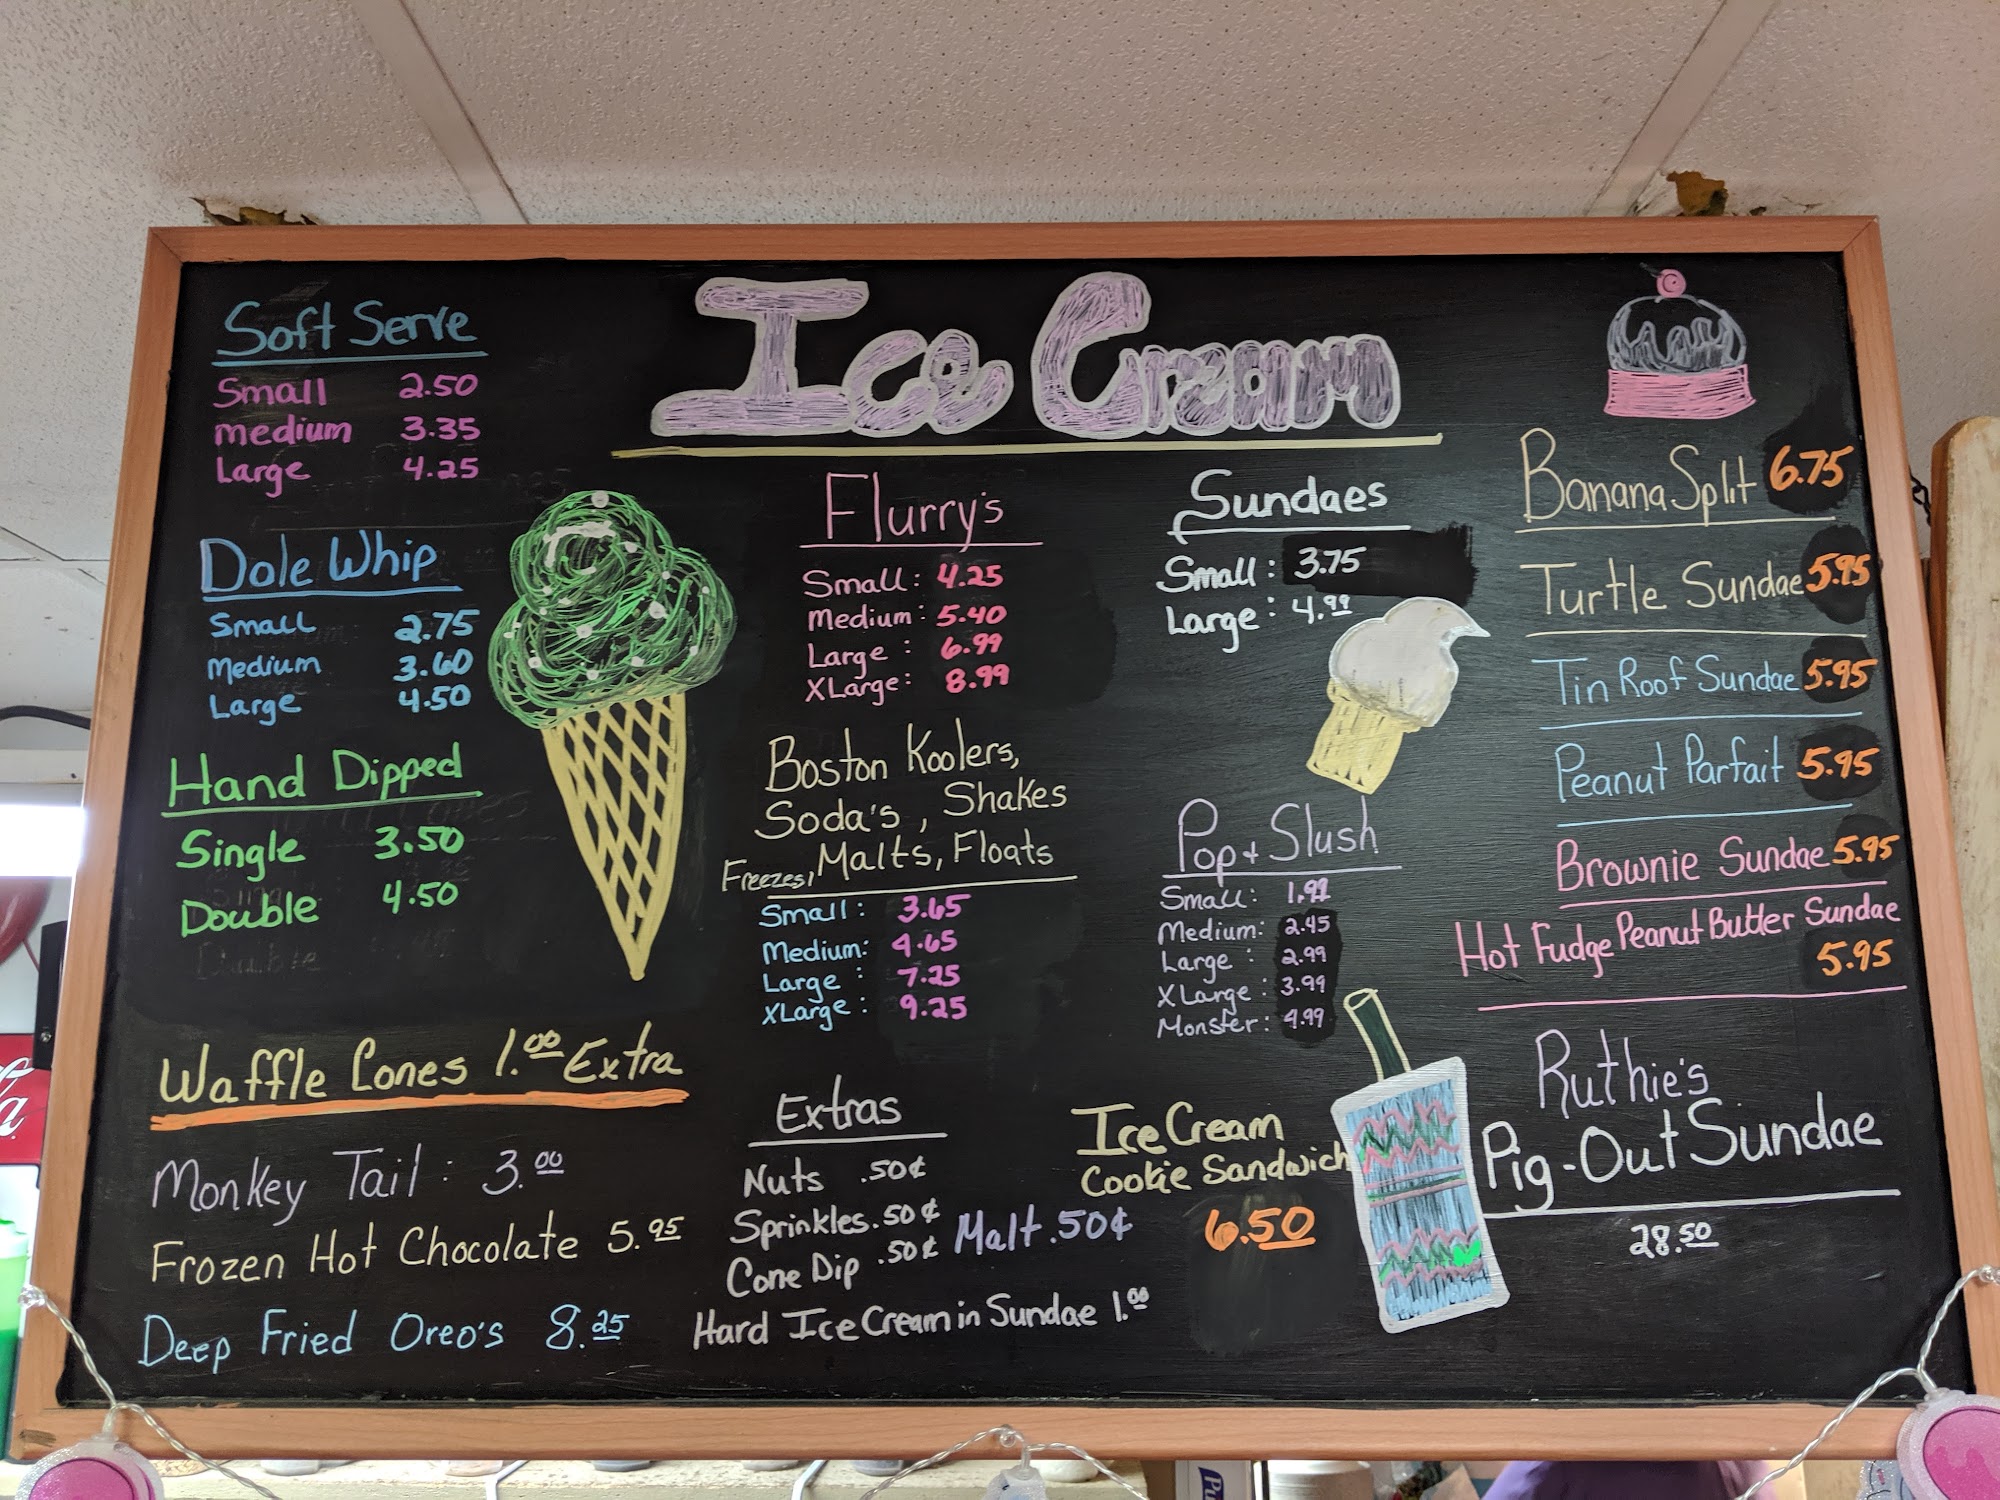 Ice Cream
Soft Serve
Small 2.50
medium 3.35
Large 4.25
Dole Whip
Small 2.75
Medium 3.60
Large 4.50
Hand Dipped
Single 3.50
Double 4.50
Waffle Cones 1.00 Extra
Monkey Tail: 3.00
Frozen Hot Chocolate 5.95
Deep Fried Oreo's 8.25
Flurry's
Small: 4.25
Medium: 5.40
Large: 6.99
XLarge: 8.99
Boston Koolers,
Soda's, Shakes
Freezes, Malts, Floats
Small: 3.65
Medium: 4.65
Large: 7.25
XLarge: 9.25
Extras
Nuts .50¢
Sprinkles .50¢
Cone Dip .50¢
Malt .50¢
Hard Ice Cream in Sundae 1.00
Sundaes
Small: 3.75
Large: 4.99
Pop + Slush
Small: 1.99
Medium: 2.45
Large: 2.99
XLarge: 3.99
Monster: 4.99
Ice Cream
Cookie Sandwich
6.50
Banana Split 6.75
Turtle Sundae 5.95
Tin Roof Sundae 5.95
Peanut Parfait 5.95
Brownie Sundae 5.95
Hot Fudge Peanut Butter Sundae
5.95
Ruthie's
Pig-Out Sundae
28.50